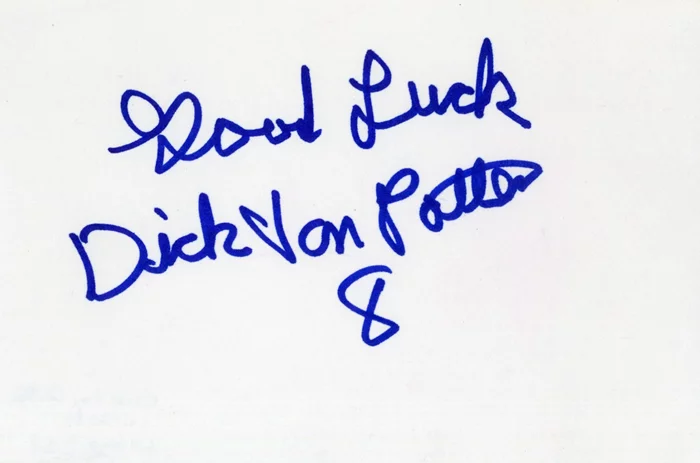 Good Luck
Dick Van Patten
8